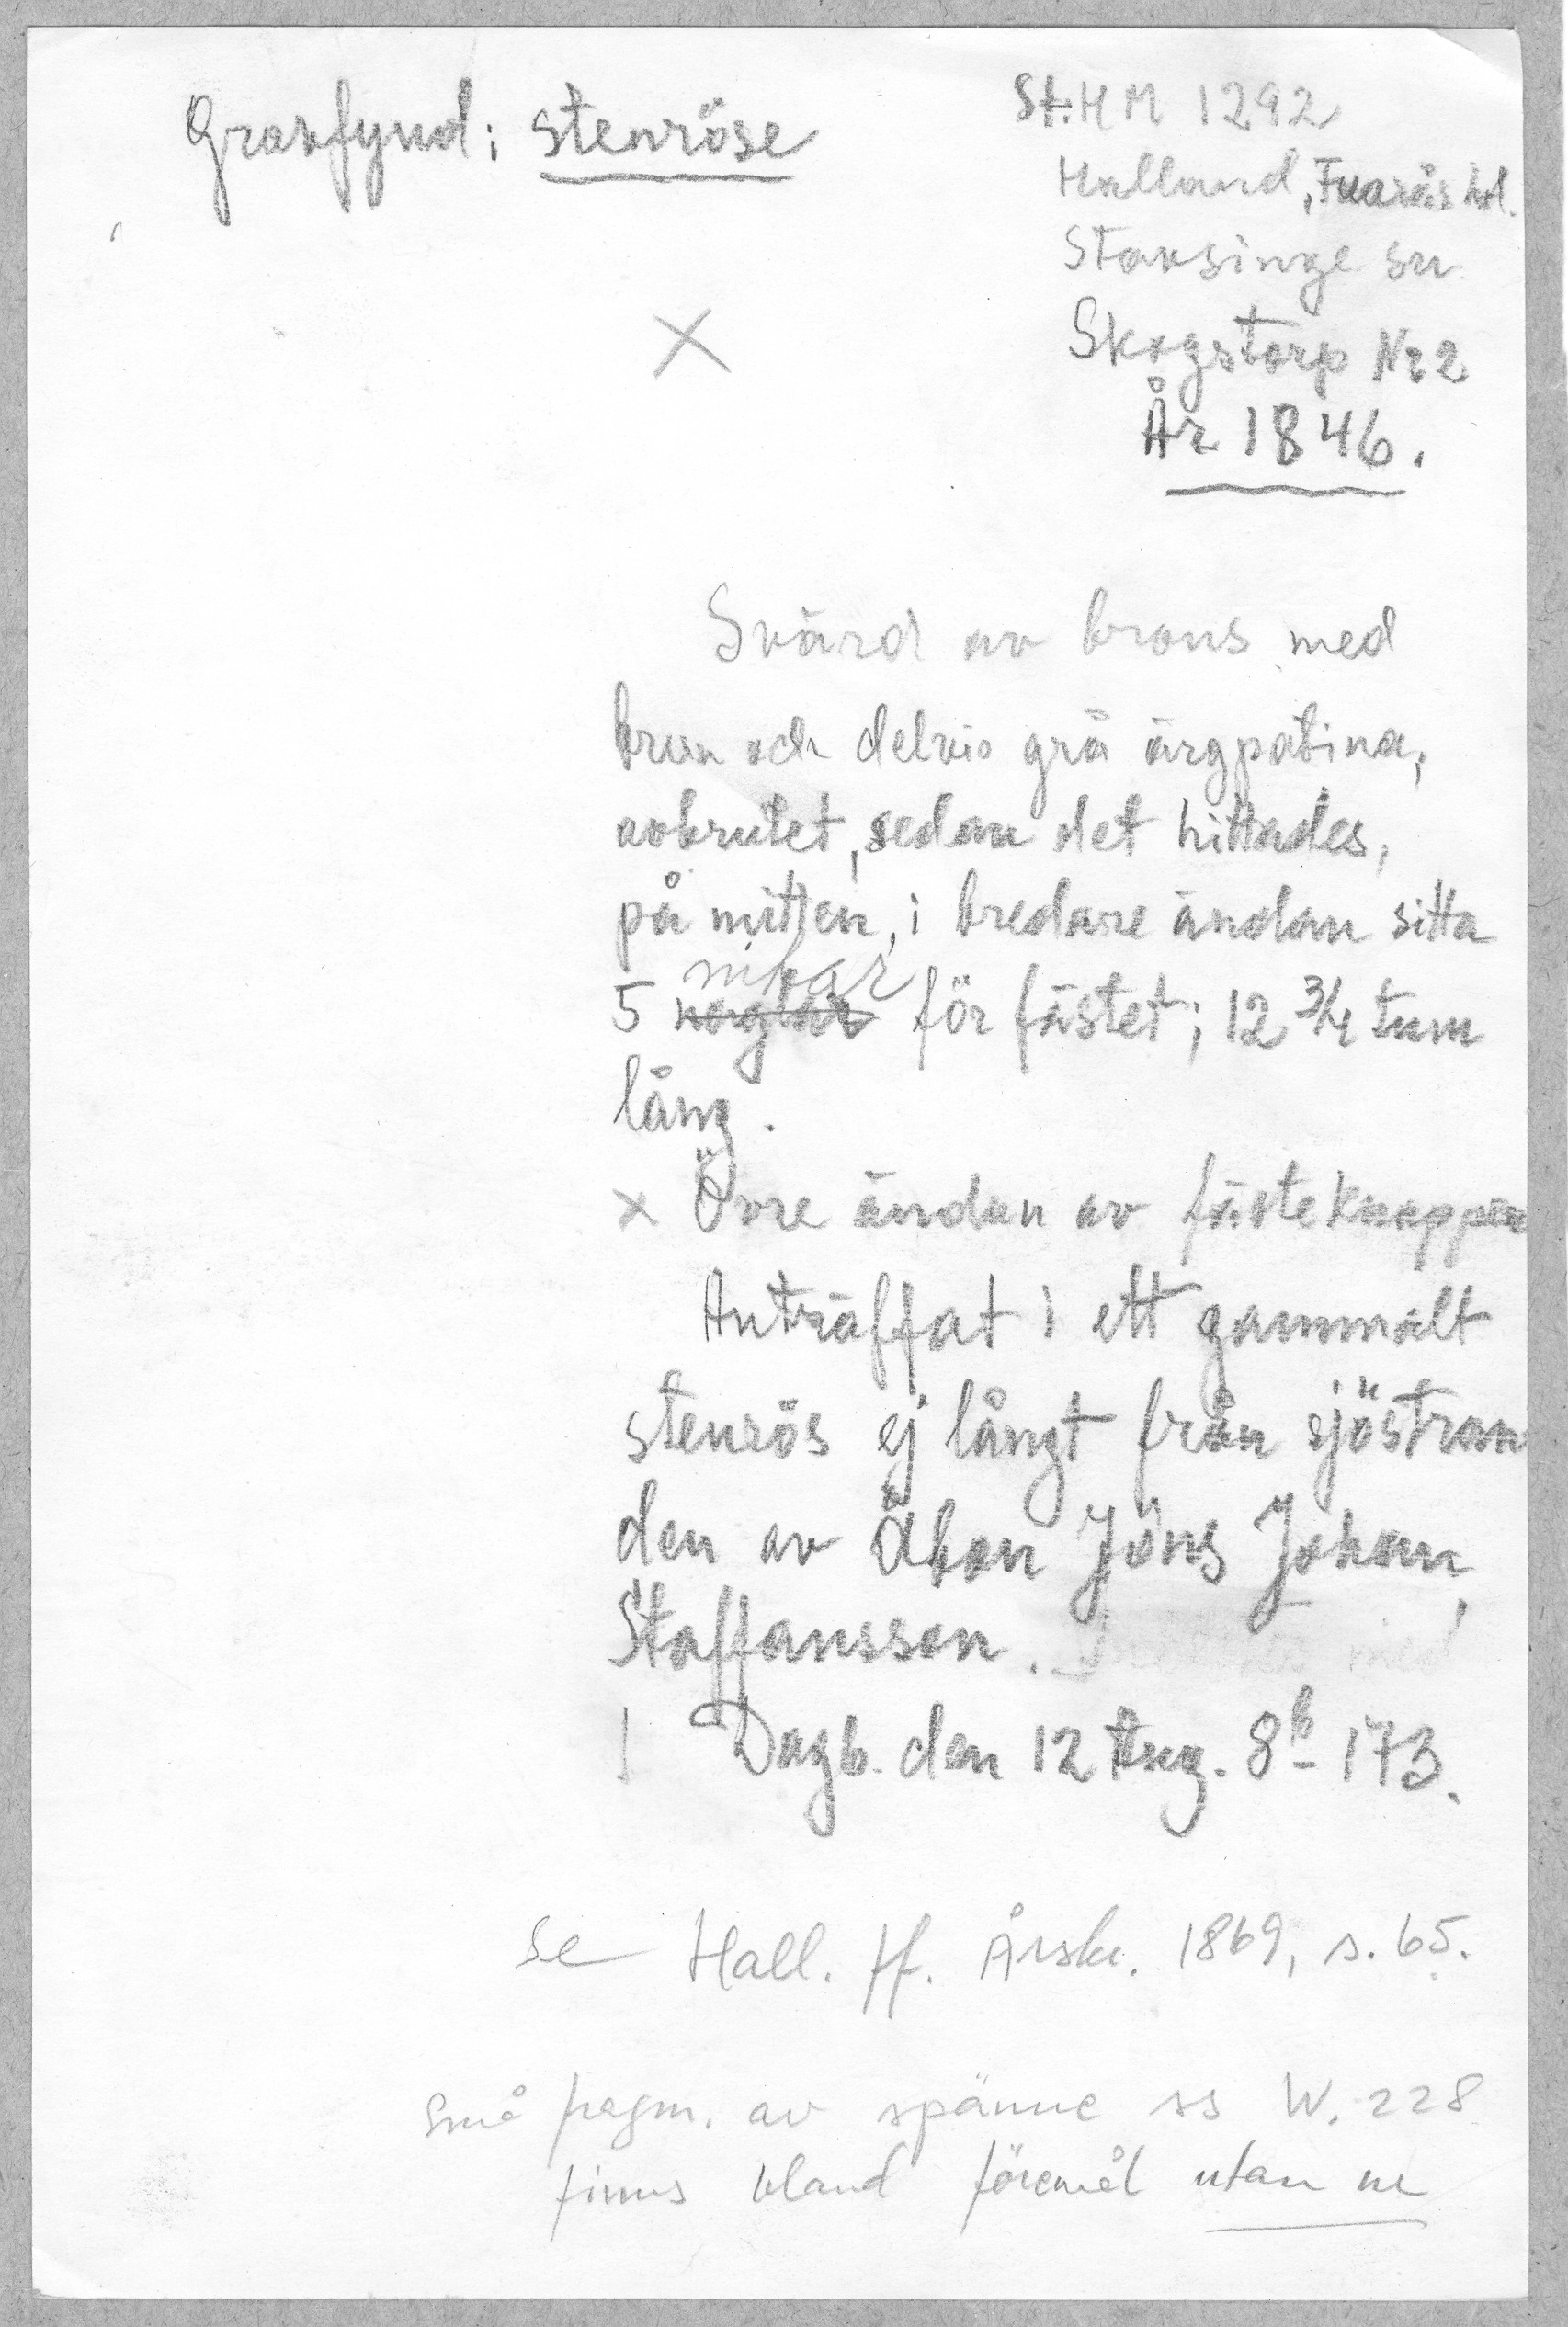 Gravfynd: stenröse
St. H M 1292
Halland, Fuarås hd.
Stavsinge sn
Skogstorp Nr 2
År 1846.
×
Svärd av brons med
brun och delvis grå ärgpatina,
avbrutet, sedan det hittades,
på mitten, i bredare ändan sitta
5 nitar för fästet; 12 3/4 tum
lång.
× Övre ändan av fästeknappen
Anträffat i ett gammalt
stenrös ej långt från sjöstran
den av Åbon Jöns Johan
Staffansson.
Dagb. den 12 Aug. 8b 173.
Se Hall. ff. Årskr. 1869, s. 65.
Små fragm. av spänne ss W. 228
finns bland föremål utan nr